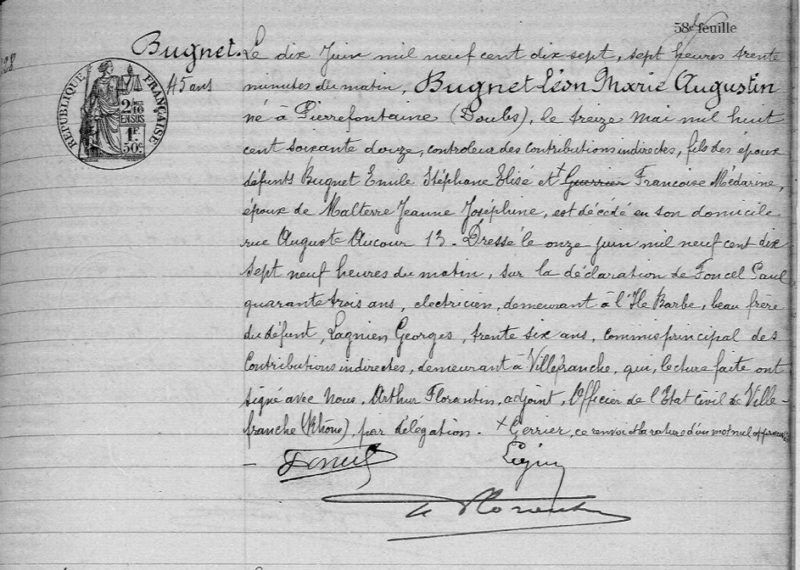 58e feuille
Bugnet.
45 ans
RÉPUBLIQUE FRANÇAISE
2/10 EN SUS
1F 50c
Le dix Juin mil neuf cent dix sept, sept heures trente
minutes du matin, Bugnet Léon Marie Augustin
né à Pierrefontaine (Doubs), le treize Mai mil huit
cent soixante douze, controleur des contributions indirectes, fils des époux
défunts Bugnet Emile Stéphane Elisé et + Guerrier Francoise Médarine,
époux de Malterre Jeanne Joséphine, est décédé en son domicile
rue Auguste Aucour 13 - Dressé le onze Juin mil neuf cent dix
sept neuf heures du matin, sur la déclaration de Foncel Paul
quarante trois ans, electricien, demeurant à l'Ile Barbe, beau frère
du défunt, Lagnien Georges, trente six ans, commis principal des
Contributions indirectes, demeurant à Villefranche, qui, lecture faite ont
signé avec Nous, Arthur Florentin, adjoint, Officier de l'Etat Civil de Ville-
franche (Rhône), par délégation. + Cerrier, ce renvoi et la rature d'un mot nul approuvés
A Florentin